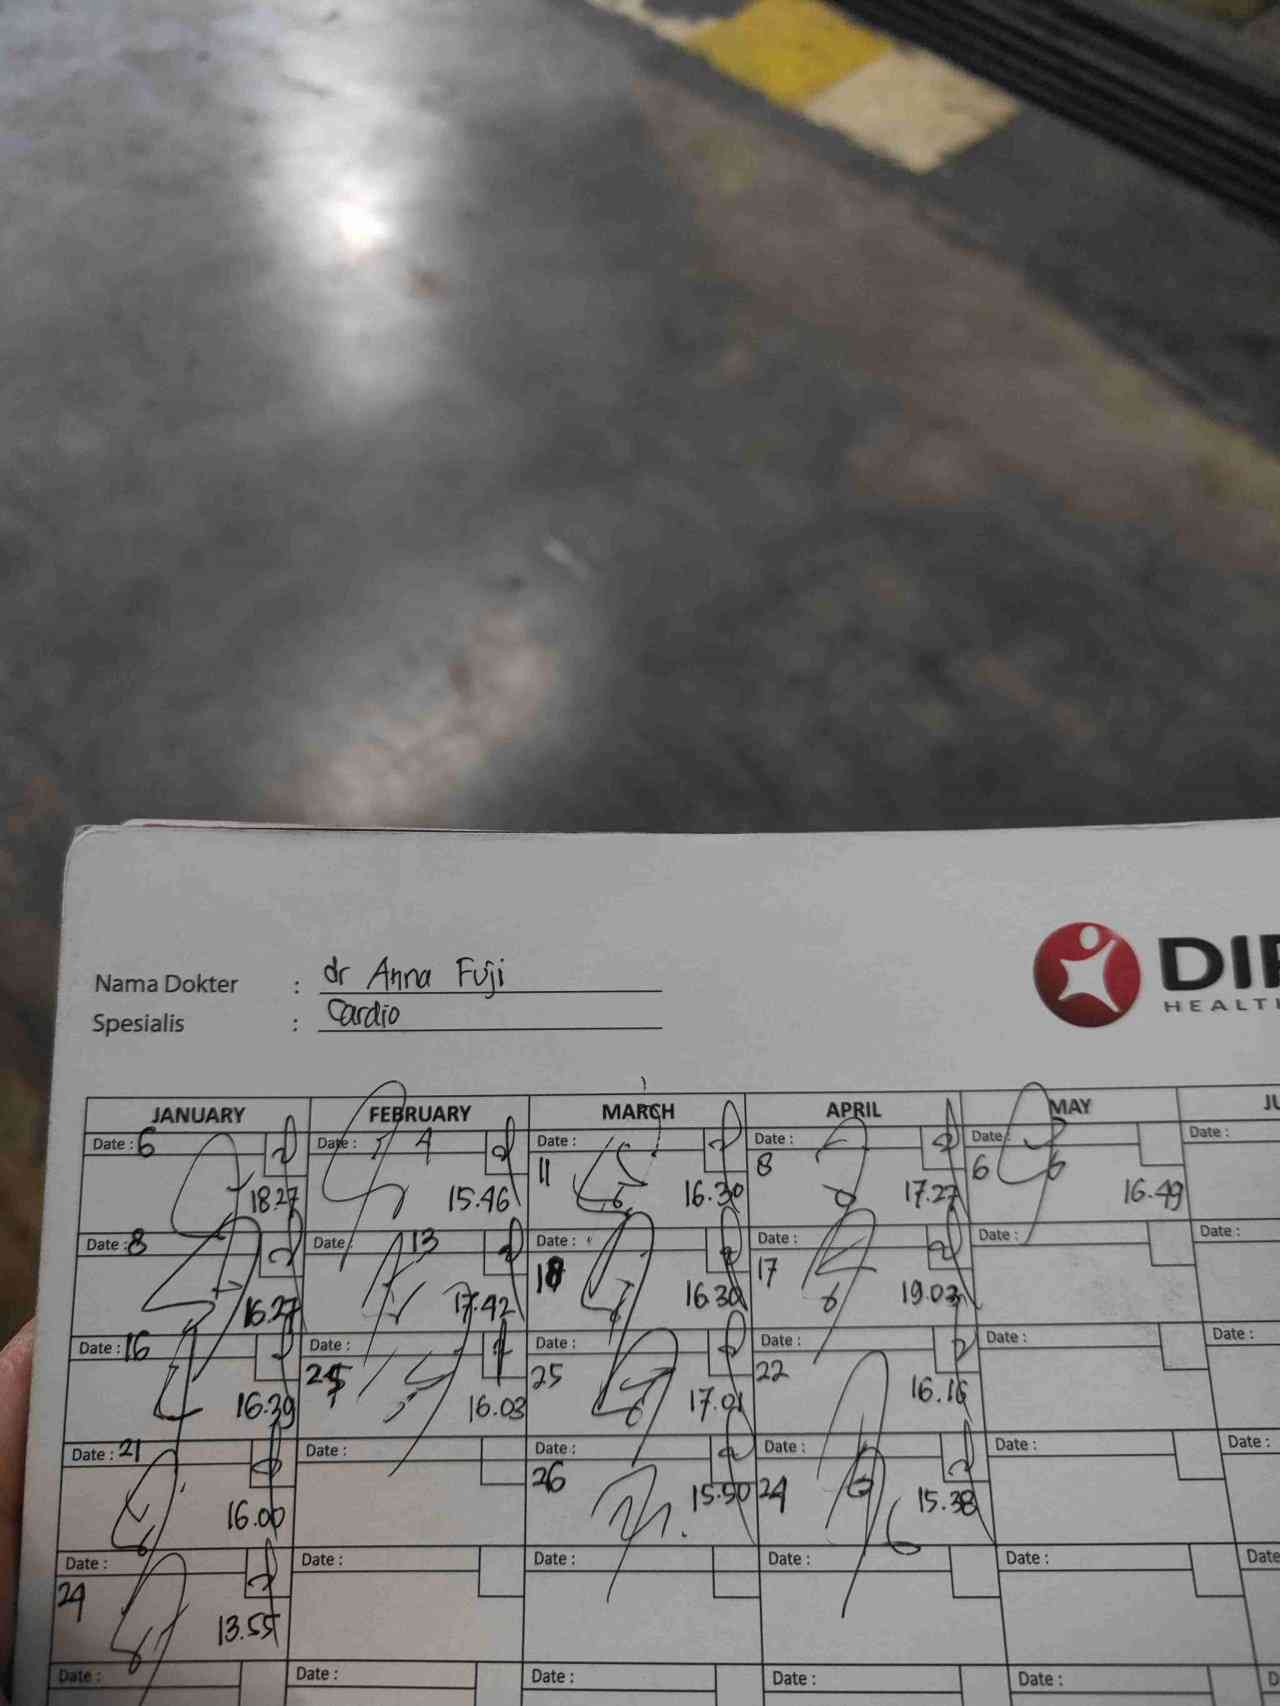 Nama Dokter : dr Anna Fuji
Spesialis : Cardio
DI
HEALT
JANUARY FEBRUARY MARCH APRIL MAY JU
Date : 6 Date : 4 Date : Date : Date : Date :
11 8 6
18.27 15.46 16.30 17.27 16.49
Date : 8 Date : 13 Date : Date : Date : Date :
18 17
16.27 17.42 16.30 19.03
Date : 16 Date : Date : Date : Date : Date :
25 25 22
16.39 16.03 17.01 16.16
Date : 21 Date : Date : Date : Date : Date :
26 24
16.00 15.50 15.38
Date : Date : Date : Date : Date : Date
24
13.55
Date : Date : Date : Date : Date : D